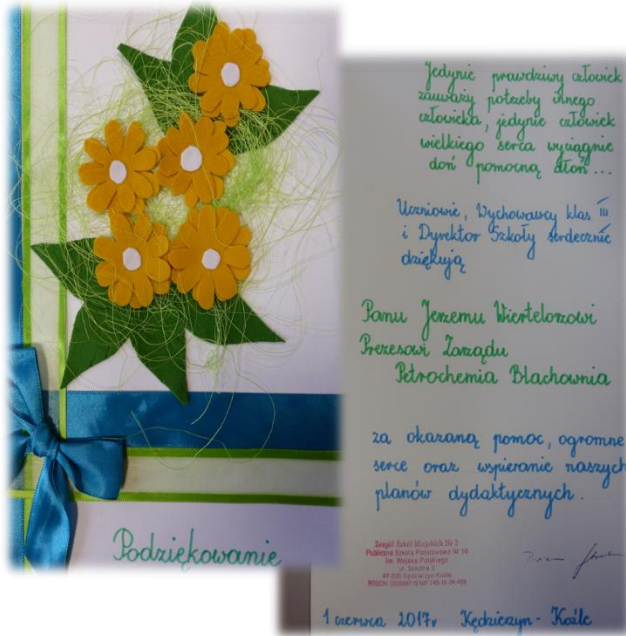 Podziękowanie
Jedynie prawdziwy człowiek
zauważy potrzeby innego
człowieka, jedynie człowiek
wielkiego serca wyciągnie
doń pomocną dłoń...
Uczniowie, Wychowawcy klas III
i Dyrektor Szkoły serdecznie
dziękują
Panu Jerzemu Wiertelorzowi
Prezesowi Zarządu
Petrochemia Blachownia
za okazaną pomoc, ogromne
serce oraz wspieranie naszych
planów dydaktycznych.
Zespół Szkół Miejskich Nr 3
Publiczna Szkoła Podstawowa Nr 10
im. Wojska Polskiego
ul. Szkolna 3
47-225 Kędzierzyn-Koźle
1 czerwca 2017r Kędzierzyn - Koźle